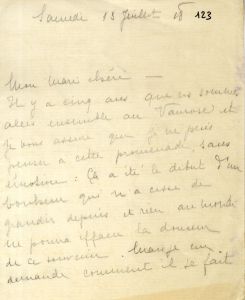 Samedi 13 Juillet 18 123
Mon mari chéri —
Il y a cinq ans que nous sommes
allés ensemble au Vaurose et
je vous assure que je ne puis
penser à cette promenade sans
émotion. Ça a été le début d'un
bonheur qui n'a cessé de
grandir depuis et rien au monde
ne pourra effacer la douceur
de ce souvenir.
demande comment il se fait